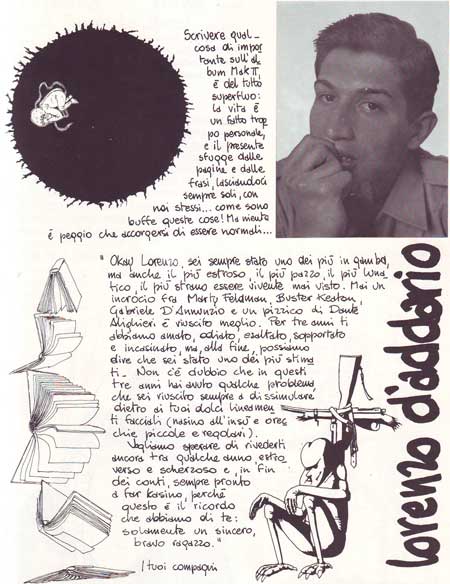 Scrivere qual-
cosa di impor
tante sull'al
bum Mak π
è del tutto
superfluo:
la vita è
un fatto trop
po personale,
e il presente
sfugge dalle
pagine e dalle
frasi, lasciandoci
sempre soli, con
noi stessi... come sono
buffe queste cose! Ma niente
è peggio che accorgersi di essere normali...
"Okay Lorenzo, sei sempre stato uno dei più in gamba,
ma anche il più estroso, il più pazzo, il più luna
tico, il più strano essere vivente mai visto. Mai un
incrocio fra Marty Feldman, Buster Keaton,
Gabriele D'Annunzio e un pizzico di Dante
Alighieri è riuscito meglio. Per tre anni ti
abbiamo amato, odiato, esaltato, sopportato
e incasinato, ma, alla fine, possiamo
dire che sei stato uno dei più stima
ti. Non c'è dubbio che in questi
tre anni hai avuto qualche problema
che sei riuscito sempre a dissimulare
dietro ai tuoi dolci lineamen
ti facciali (nasino all'insù e orec
chie piccole e regolari).
Vogliamo sperare di rivederti
ancora tra qualche anno estro
verso e scherzoso e, in fin
dei conti, sempre pronto
a far kasino, perché
questo è il ricordo
che abbiamo di te:
solamente un sincero,
bravo ragazzo."
I tuoi compagni
lorenzo d'addario